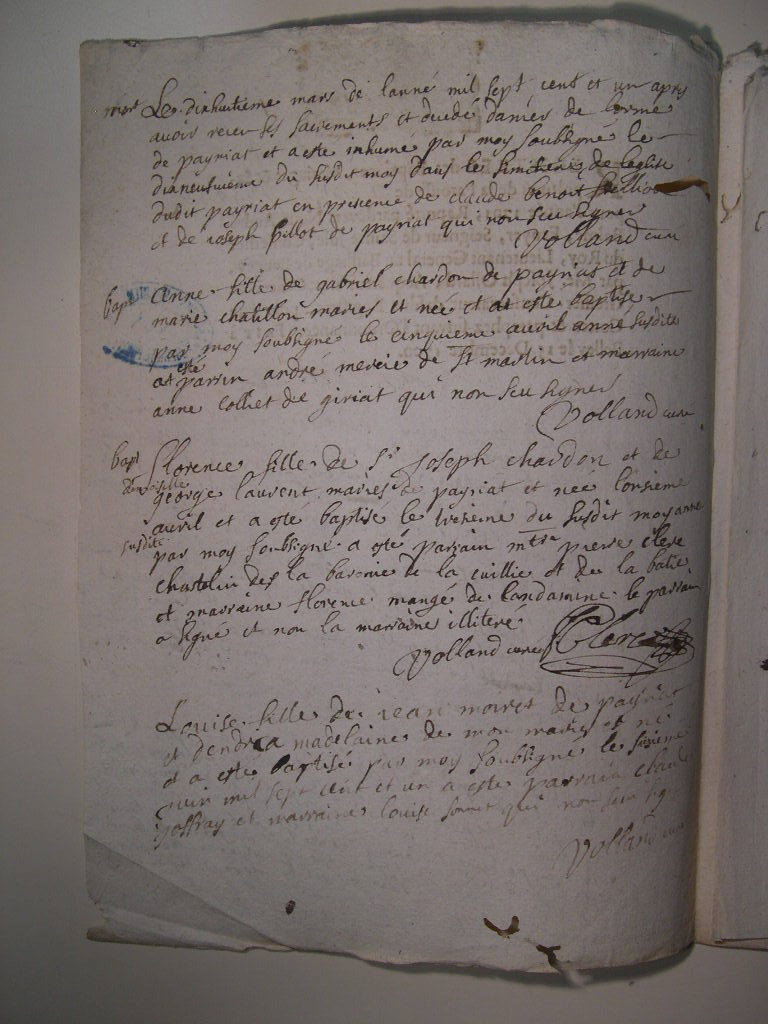 mort Le dixhuitieme mars de lanné mil sept cent et un apres
avoir receu ses sacrements et decedé damés de lorme
de payriat et a este inhumé par moy soubsigne le
dixneufvieme du susdit moy dans le simitiere de leglise
dudit payriat en presence de claude benoit
et de ioseph pillot de payriat qui non seu signer
Volland curé
bapt Anne fille de gabriel chardon de payriat et de
marie chatillon maries et neé et at este baptise
par moy soubsigné le cinquieme auril anné susdite
at esté parrin andré mercie de St martin et marraine
anne collet de giriat qui non seu signer
Volland curé
bapt Florence fille de Sr Joseph chardon et de
demoiselle george laurent maries de payriat et neé lonsieme
auril et a esté baptisé le treseme du susdit moy anné
susdite par moy soubsigné a esté parrain mtre pierre clerc
chastelin des la baronie de la cuillie et de la batie
et marraine florence mangé de landamine le parrain
a signé et non la marraine illiteré
Volland curé Clerc
Louise fille de iean moiret de payriat
et dendrea madelaine de mon maries et né
et a este baptisé par moy soubsigne le sixieme
iuin mil sept cent et un a este parrain claude
ioffray et marraine louise qui non seu sig
Volland curé